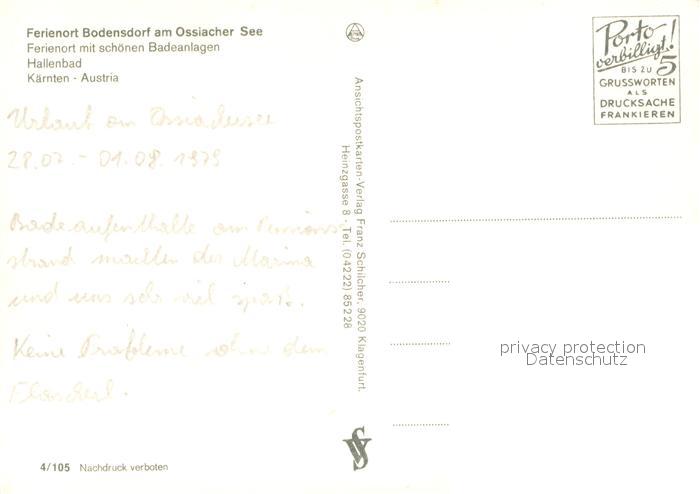 Ferienort Bodensdorf am Ossiacher See
Ferienort mit schönen Badeanlagen
Hallenbad
Kärnten - Austria
Urlaub am Ossiachersee
28.07. - 01.08. 1979
Badeaufenthalte am Pensions-
strand machten der Marina
und uns sehr viel Spaß.
Keine Probleme ohne dem
Flascherl.
4/105 Nachdruck verboten
Ansichtspostkarten-Verlag Franz Schilcher, 9020 Klagenfurt,
Heinzgasse 8 - Tel. (04222) 85228
Porto
verbilligt!
BIS ZU 5
GRUSSWORTEN
ALS
DRUCKSACHE
FRANKIEREN
privacy protection
Datenschutz